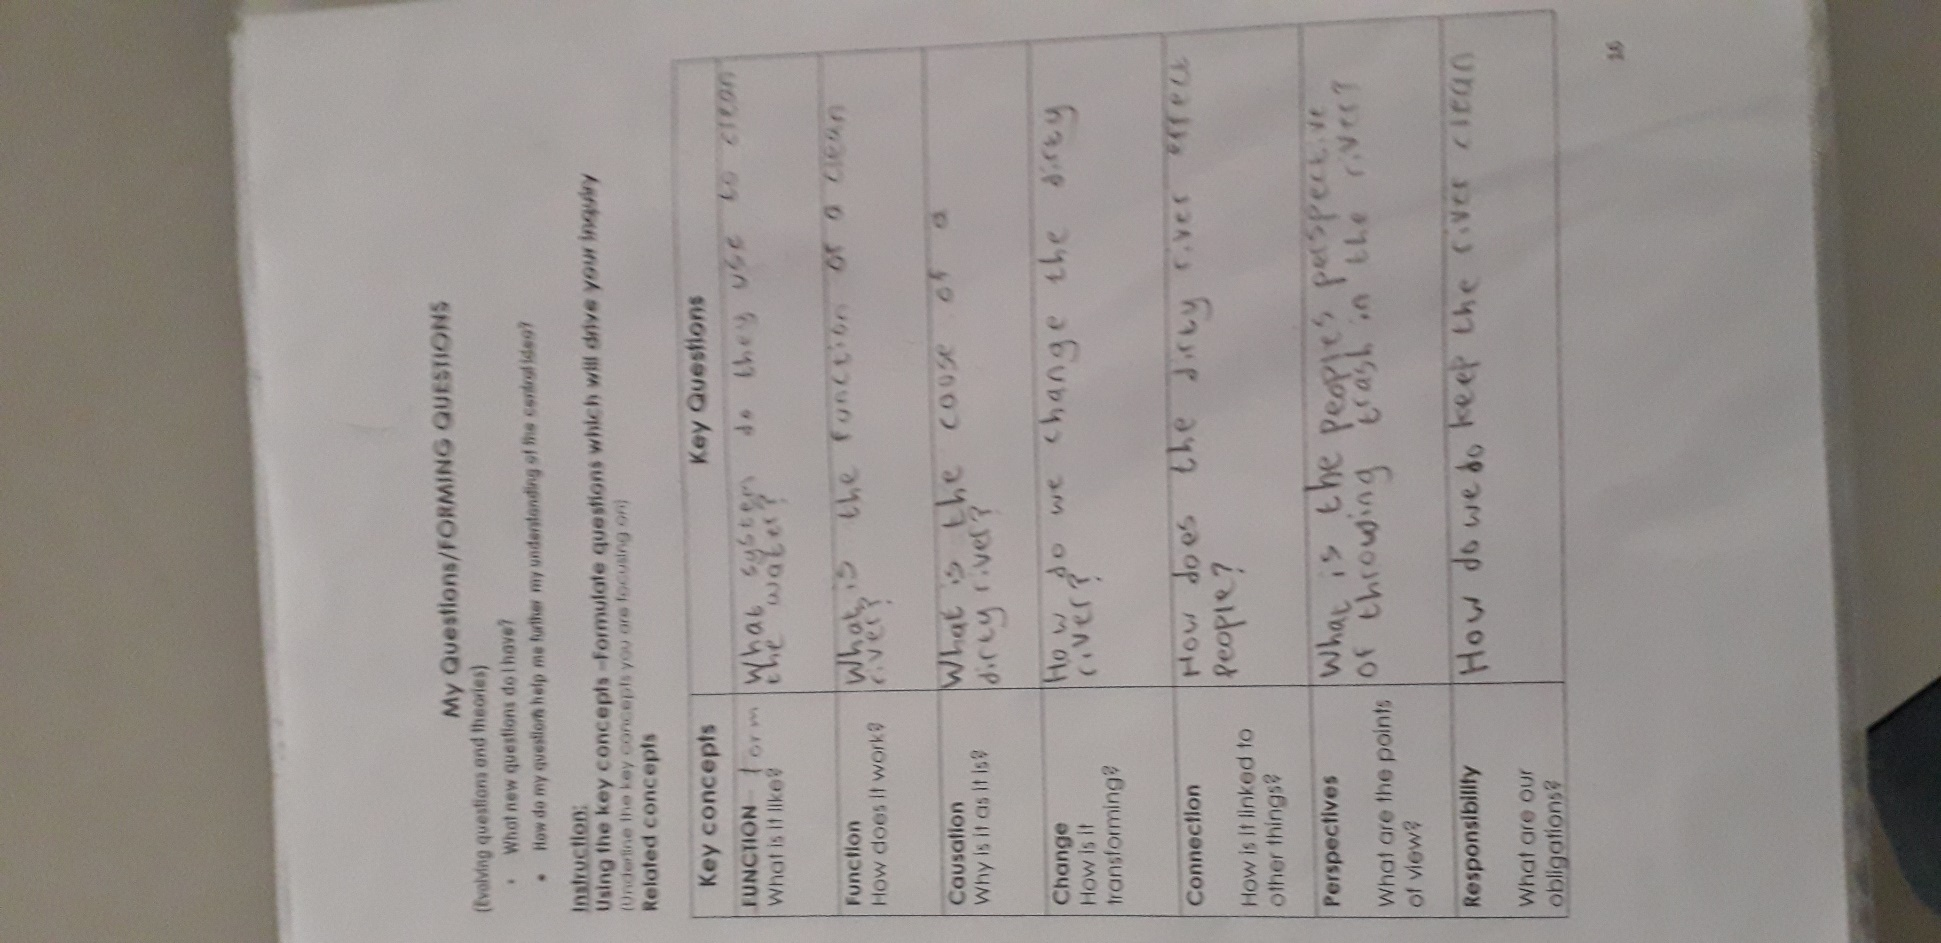 My Questions/FORMING QUESTIONS
(Evolving questions and theories)
• What new questions do I have?
• How do my question help me further my understanding of the central idea?
Instruction:
Using the key concepts –formulate questions which will drive your inquiry
(Underline the key concepts you are focusing on)
Related concepts
Key concepts
Key Questions
FUNCTION form
What is it like?
What system do they use to clean
the water?
Function
How does it work?
What is the function of a clean
river?
Causation
Why is it as it is?
What is the cause of a
dirty river?
Change
How is it
transforming?
How do we change the dirty
river?
Connection
How is it linked to
other things?
How does the dirty river effect
people?
Perspectives
What are the points
of view?
What is the peoples perspective
of throwing trash in the river?
Responsibility
What are our
obligations?
How do we do keep the river clean
16